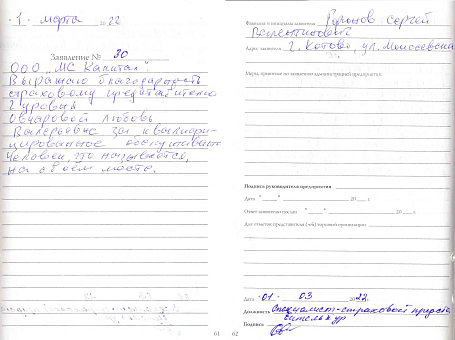 "1" марта 2022
Заявление № 30
ООО "МС Капитал"
Выражаю благодарность
страховому представителю
2 уровня
Овчаровой Любовь
Валерьевне за квалифи-
цированное обслуживание.
Человек, что называется,
на своём месте.
61
Фамилия и инициалы заявителя Сергей
Валентинович
Адрес заявителя г. Котово, ул.
Меры, принятые по заявлению администрацией предприятия:
Подпись руководителя предприятия
Дата "___" 20 г.
Ответ заявителю послан "___" 20 г.
Для отметки представителя (-ей) торговой организации
Дата "01" 03 2022
Должность Специалист-страховой предста-
витель 2 ур
Подпись
62